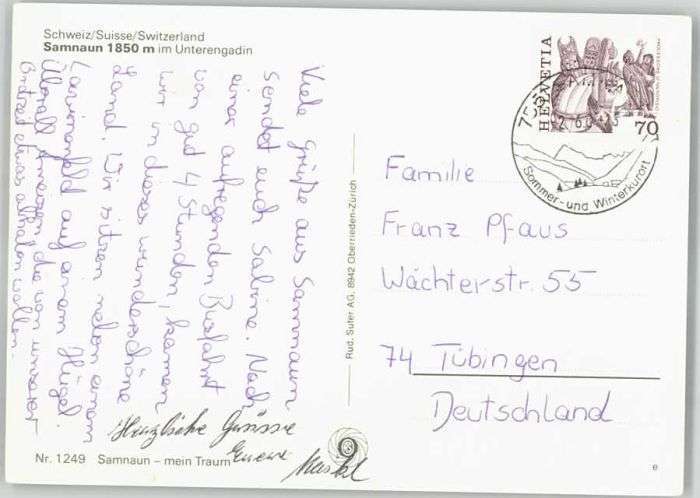 Schweiz/Suisse/Switzerland
Samnaun 1850 m im Unterengadin
Viele Grüße aus Samnaun
sendet euch Sabine. Nach
einer aufregenden Busfahrt
von gut 4 Stunden, kamen
wir in dieses wunderschöne
Land. Wir sitzen neben einem
auf einem Hügel.
Überall die von unserer
etwas
Herzliche Grüsse
Euere
Nr. 1249 Samnaun – mein Traum
Rud. Suter AG, 8942 Oberrieden-Zürich
HELVETIA
70
Sommer- und Winterkurort
Familie
Franz Pfaus
Wächterstr. 55
74 Tübingen
Deutschland
e